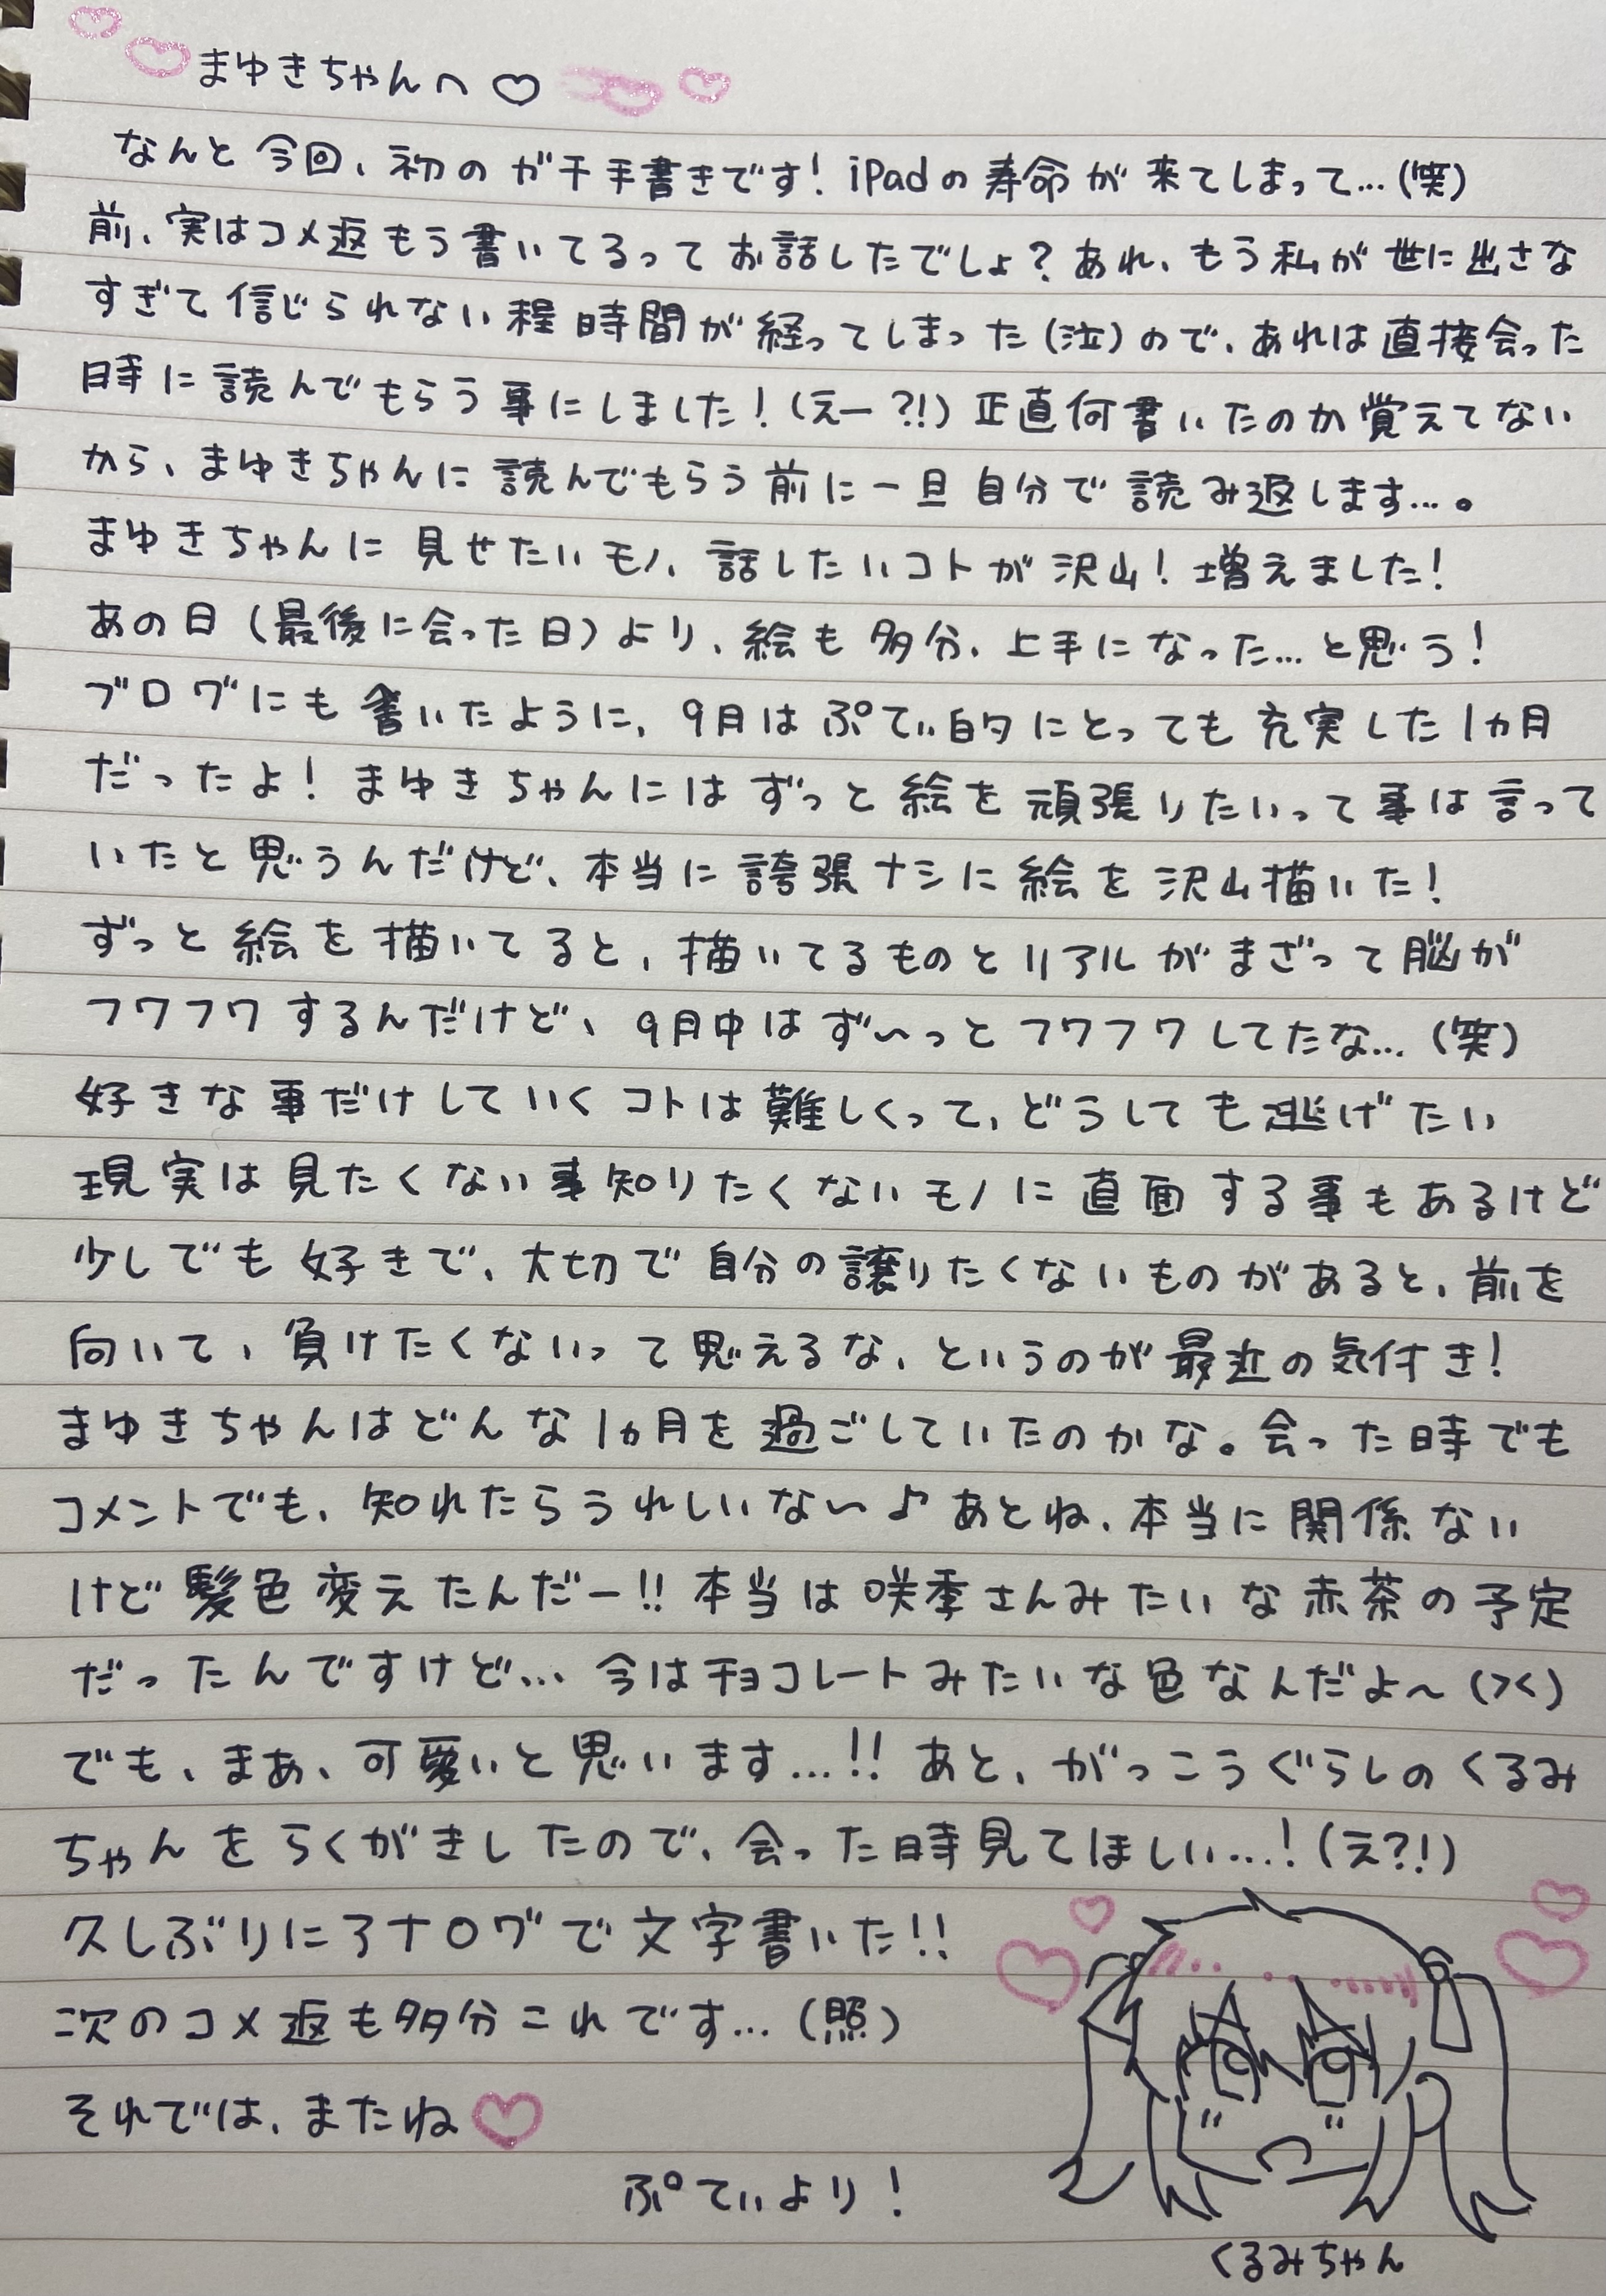 まゆきちゃんへ♡
なんと今回、初のガチ手書きです！iPadの寿命が来てしまって…(笑)
前、実はコメ返もう書いてるってお話したでしょ？あれ、もう私が世に出さな
すぎて信じられない程時間が経ってしまった(泣)ので、あれは直接会った
時に読んでもらう事にしました！(えー?!)正直何書いたのか覚えてない
から、まゆきちゃんに読んでもらう前に一旦自分で読み返します…。
まゆきちゃんに見せたいモノ、話したいコトが沢山！増えました！
あの日(最後に会った日)より、絵も多分、上手になった…と思う！
ブログにも書いたように、9月はぷてぃ的にとっても充実した1ヵ月
だったよ！まゆきちゃんにはずっと絵を頑張りたいって事は言って
いたと思うんだけど、本当に誇張ナシに絵を沢山描いた！
ずっと絵を描いてると、描いてるものとリアルがまざって脳が
フワフワするんだけど、9月中はず〜っとフワフワしてたな…(笑)
好きな事だけしていくコトは難しくって、どうしても逃げたい
現実は見たくない事知りたくないモノに直面する事もあるけど
少しでも好きで、大切で自分の譲りたくないものがあると、前を
向いて、負けたくないって思えるな、というのが最近の気付き！
まゆきちゃんはどんな1ヵ月を過ごしていたのかな。会った時でも
コメントでも、知れたらうれしいない〜♪あとね、本当に関係ない
けど髪色変えたんだー!!本当は咲季さんみたいな赤茶の予定
だったんですけど…今はチョコレートみたいな色なんだよ〜(><)
でも、まあ、可愛いと思います…!!あと、がっこうぐらしのくるみ
ちゃんをらくがきしたので、会った時見てほしい…！(え?!)
久しぶりにアナログで文字書いた!!
次のコメ返も多分これです…(照)
それでは、またね♡
ぷてぃより！
くるみちゃん